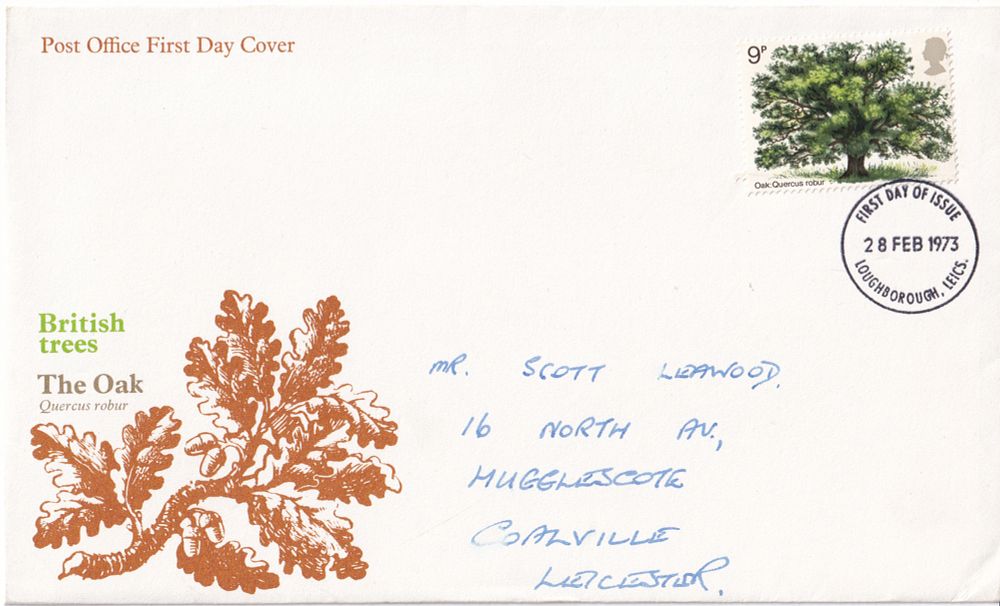 Post Office First Day Cover
9P
Oak: Quercus robur
FIRST DAY OF ISSUE
28 FEB 1973
LOUGHBOROUGH, LEICS.
British
trees
The Oak
Quercus robur
MR. SCOTT LEAWOOD.
16 NORTH AV.,
MUGGLESCOTE
COALVILLE
LEICESTER.